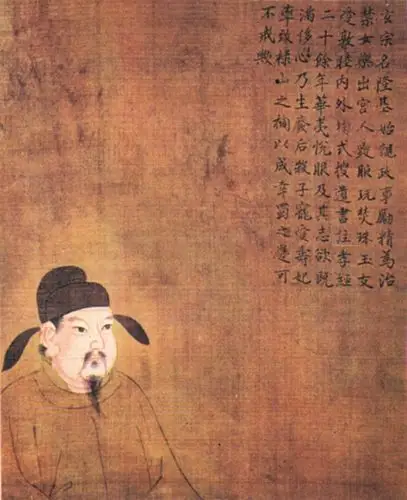 玄宗名隆基始聽政事勵精為治
禁女樂出宮人毀服玩焚珠玉友
愛敦睦內外式搜遺書註孝經
二十餘年華夷悅服及其志欲既
滿侈心乃生廢后殺子寵愛壽妃
卒致祿山之禍以成幸蜀之可
不戒歟